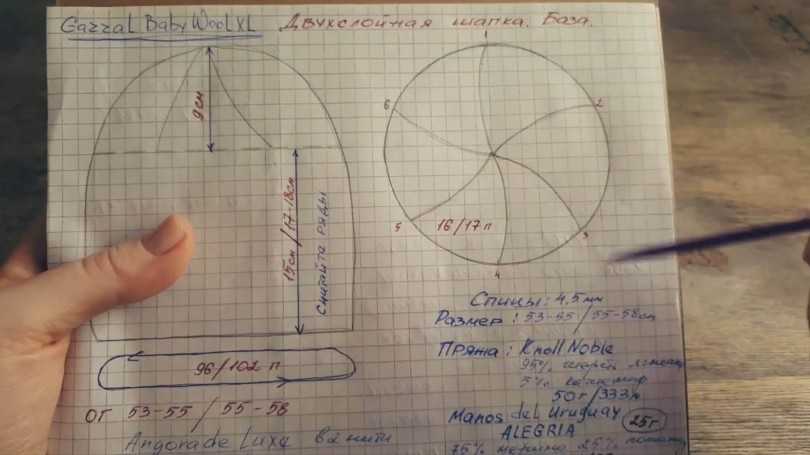 Gazzal Baby Wool XL Двухслойная шапка. База.
1
2
3
4
5
6
9 см
15см / 17-18см
Считайте ряды
16/17 п
96/102 п
ОГ 53-55 / 55-58
Angora de Luxe в 2 нити
Спицы: 4,5 мм
Размер: 53-55 / 55-58см
Пряжа: Knoll Noble
95%
5% кашемир
50г/333м
Manos del Uruguay 25г
ALEGRIA
75% 25%